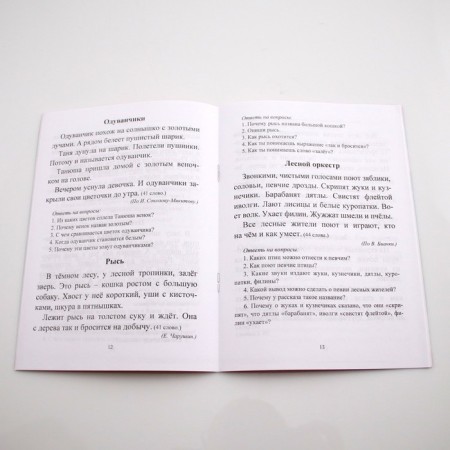 Одуванчики
Одуванчик похож на солнышко с золотыми
лучами. А рядом белеет пушистый шарик.
Таня дунула на шарик. Полетели пушинки.
Потому и называется одуванчик.
Танюша пришла домой с золотым веноч-
ком на голове.
Вечером уснула девочка. И одуванчики за-
крыли свои цветочки до утра. (41 слово.)
(По И. Соколову-Микитову.)
Ответь на вопросы.
1. Из каких цветов сплела Танюша венок?
2. Почему венок назван золотым?
3. С чем сравнивается цветок одуванчика?
4. Когда одуванчик становится белым?
5. Почему эти цветы зовут одуванчиками?
Рысь
В тёмном лесу, у лесной тропинки, залёг
зверь. Это рысь – кошка ростом с большую
собаку. Хвост у неё короткий, уши с кисточ-
ками, шкура в пятнышках.
Лежит рысь на толстом суку и ждёт. Она
с дерева так и бросится на добычу. (41 слово.)
(Е. Чарушин.)
12
Ответь на вопросы.
1. Почему рысь назвали большой кошкой?
2. Опиши рысь.
3. Как рысь охотится?
4. Как ты понимаешь выражение «так и бросится»?
5. Как ты понимаешь слово «залёг»?
Лесной оркестр
Звонкими, чистыми голосами поют зяблики,
соловьи, певчие дрозды. Скрипят жуки и куз-
нечики. Барабанят дятлы. Свистят флейтой
иволги. Лают лисицы и белые куропатки. Во-
ет волк. Ухает филин. Жужжат шмели и пчёлы.
Все лесные жители поют и играют, кто
на чём и как умеет. (44 слова.)
(По В. Бианки.)
Ответь на вопросы.
1. Каких птиц можно отнести к певчим?
2. Как поют певчие птицы?
3. Какие звуки издают жуки, кузнечики, дятлы, куро-
патки, филины?
4. Какой вывод можно сделать о пении лесных жителей?
5. Почему у рассказа такое название?
6. Почему о жуках и кузнечиках сказано, что они «скри-
пят», что дятлы «барабанят», иволги «свистят флейтой», фи-
лин «ухает»?
13